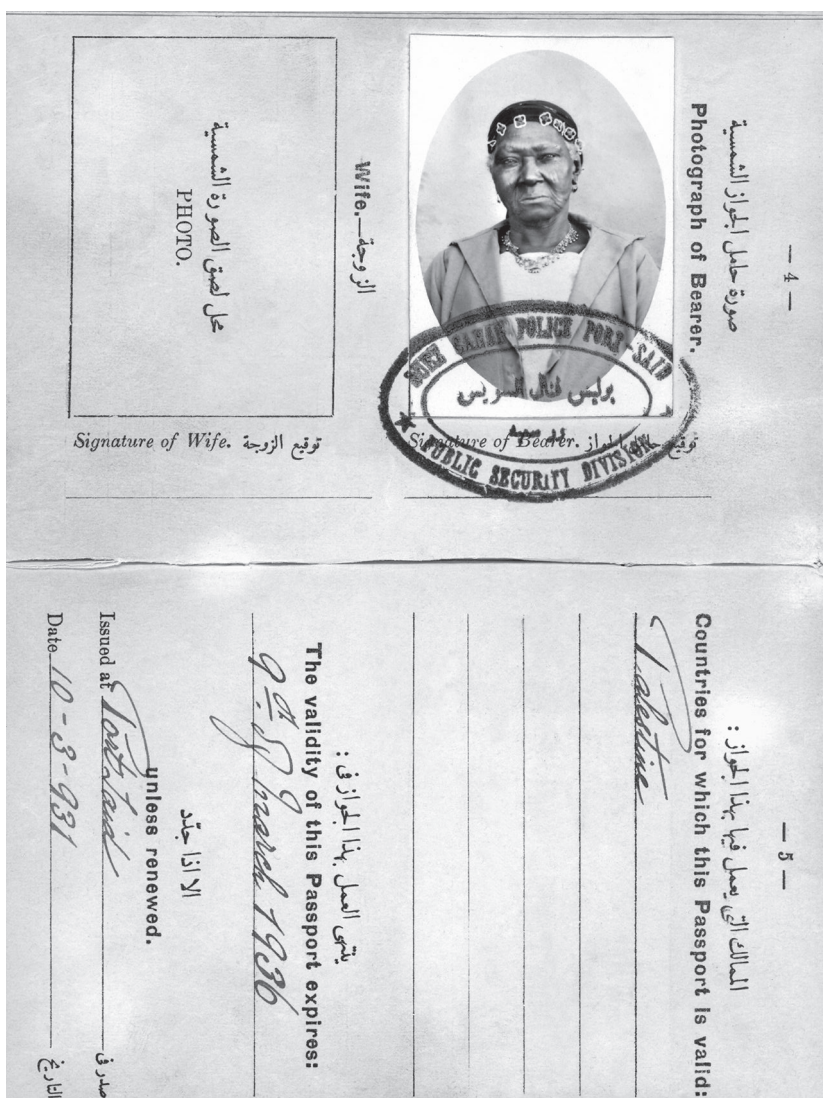 — 4 —
صورة حامل الجواز الشمسية
Photograph of Bearer.
SUEZ CANAL POLICE PORT-SAID
بوليس قنال السويس
بور سعيد
★ PUBLIC SECURITY DIVISION
Signature of Bearer. توقيع حامل الجواز
Wife.—الزوجة
محل لصق الصورة الشمسية
PHOTO.
Signature of Wife. توقيع الزوجة
— 5 —
الممالك التى يعمل فيها بهذا الجواز :
Countries for which this Passport is valid:
Palestine
ينتهى العمل بهذا الجواز فى :
The validity of this Passport expires:
9th of March 1936
الا اذا جدّد
unless renewed.
Issued at Port Said صدر فى
Date 10-3-931 التاريخ